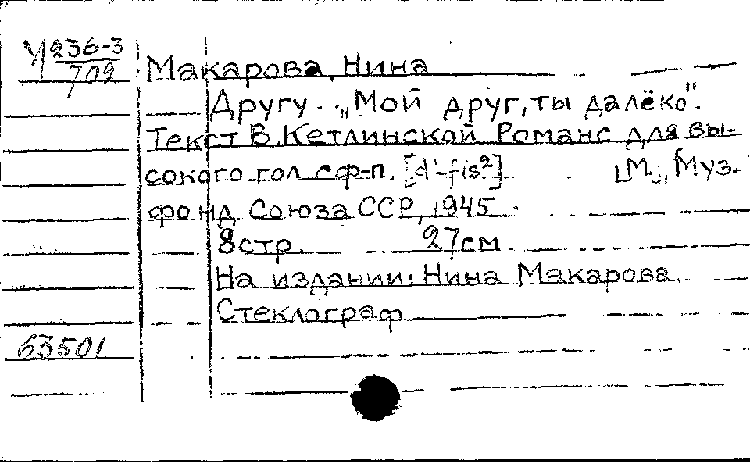 У 236-3
709
Макарова, Нина
Другу. „Мой друг, ты далёко".
Текст В. Кетлинской Романс для вы-
сокого гол с ф-п. [d'-fis²] [М.], Муз.
фонд Союза ССР, 1945.
8 стр. 27 см.
На издании: Нина Макарова.
Стеклограф
63501